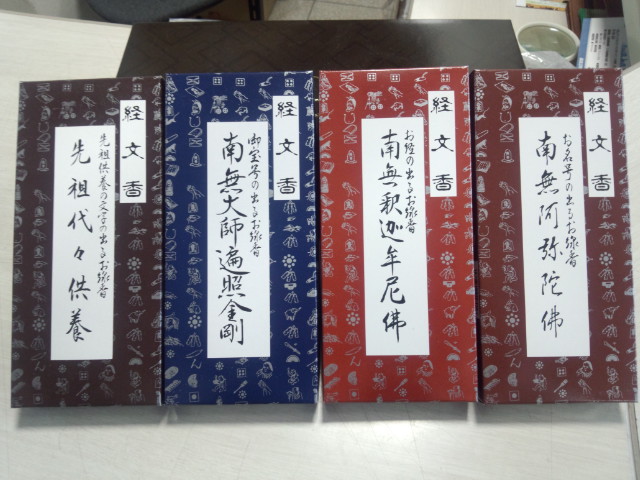 経文香
お名号の出るお線香
南無阿弥陀佛
経文香
お経の出るお線香
南無釈迦牟尼佛
経文香
御宝号の出るお線香
南無大師遍照金剛
経文香
先祖供養の文字の出るお線香
先祖代々供養